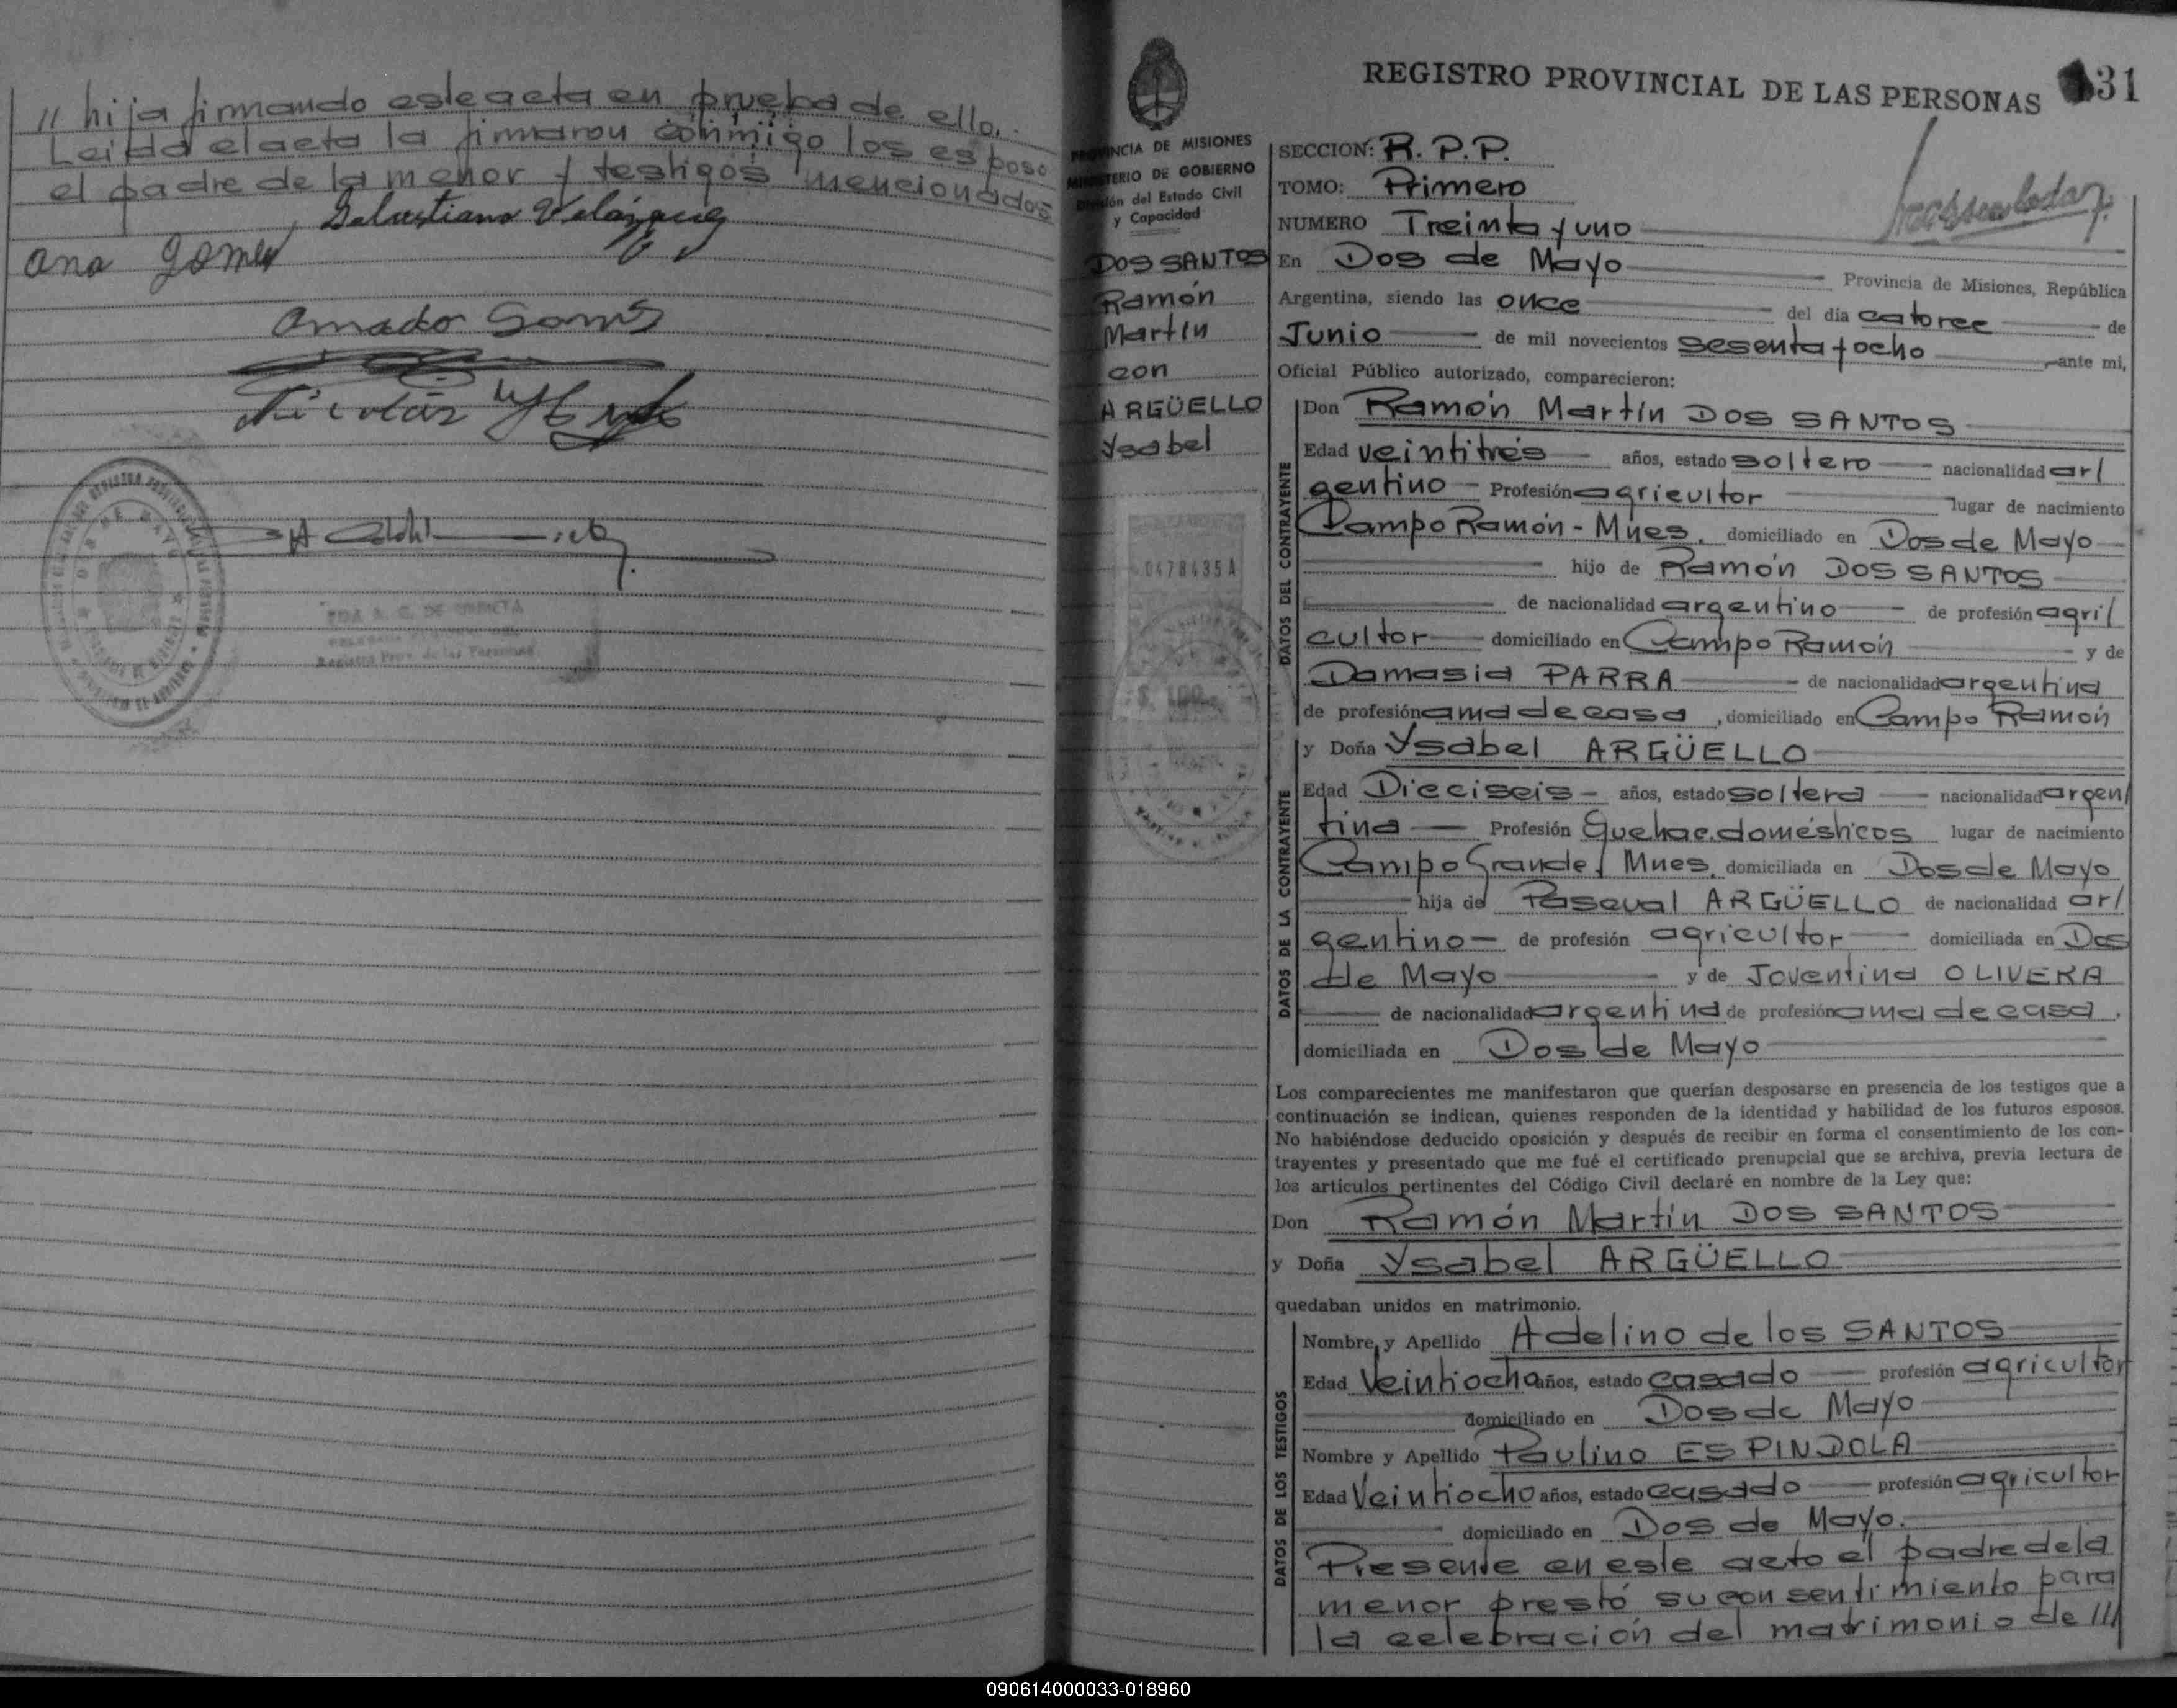 // hija firmando este acta en prueba de ello.
Leida el acta la firmaron conmigo los esposo
el padre de la menor y testigos mencionados
Salustiano Velázquez
Ana Gomez
Amado
Nicolás
REGISTRO PROVINCIAL DE LAS PERSONAS 31
PROVINCIA DE MISIONES
MINISTERIO DE GOBIERNO
División del Estado Civil
y Capacidad
DOS SANTOS
Ramón
Martín
con
ARGÜELLO
Ysabel
0478435A
SECCION: R. P. P.
TOMO: Primero
NUMERO Treinta y uno
En Dos de Mayo Provincia de Misiones, República
Argentina, siendo las once del día catorce de
Junio de mil novecientos sesenta y ocho, ante mi,
Oficial Público autorizado, comparecieron:
DATOS DEL CONTRAYENTE
Don Ramón Martín DOS SANTOS
Edad veintitrés años, estado soltero nacionalidad ar/
gentino Profesión agricultor lugar de nacimiento
Campo Ramón - Mnes. domiciliado en Dos de Mayo
hijo de Ramón DOS SANTOS
de nacionalidad argentino de profesión agri/
cultor domiciliado en Campo Ramón y de
Damasia PARRA de nacionalidad argentina
de profesión ama de casa, domiciliado en Campo Ramón
DATOS DE LA CONTRAYENTE
y Doña Ysabel ARGÜELLO
Edad Dieciseis años, estado soltera nacionalidad argen/
tina Profesión Quehac. domésticos lugar de nacimiento
Campo Grande, Mnes. domiciliada en Dos de Mayo
hija de Pascual ARGÜELLO de nacionalidad ar/
gentino de profesión agricultor domiciliada en Dos
de Mayo y de Joventina OLIVERA
de nacionalidad argentina de profesión ama de casa,
domiciliada en Dos de Mayo
Los comparecientes me manifestaron que querían desposarse en presencia de los testigos que a
continuación se indican, quienes responden de la identidad y habilidad de los futuros esposos.
No habiéndose deducido oposición y después de recibir en forma el consentimiento de los con-
trayentes y presentado que me fué el certificado prenupcial que se archiva, previa lectura de
los artículos pertinentes del Código Civil declaré en nombre de la Ley que:
Don Ramón Martín DOS SANTOS
y Doña Ysabel ARGÜELLO
quedaban unidos en matrimonio.
DATOS DE LOS TESTIGOS
Nombre y Apellido Adelino de los SANTOS
Edad Veintiocho años, estado casado profesión agricultor
domiciliado en Dos de Mayo
Nombre y Apellido Paulino ESPINDOLA
Edad Veintiocho años, estado casado profesión agricultor
domiciliado en Dos de Mayo.
Presente en este acto el padre de la
menor prestó su consentimiento para
la celebración del matrimonio de ///
090614000033-018960